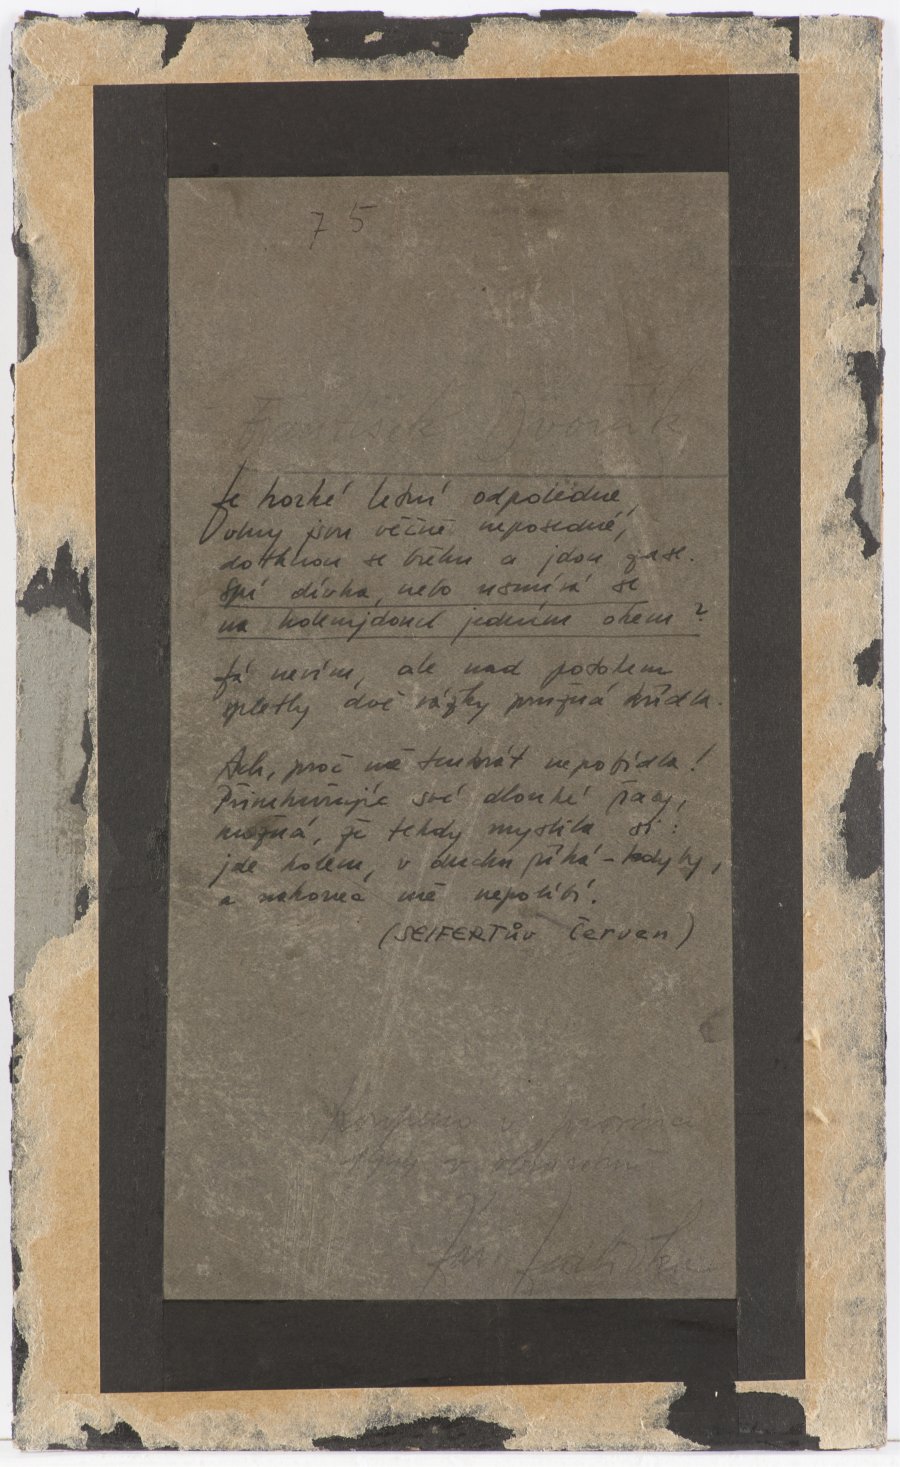 75
František Dvořák
Je horké letní odpoledne,
vlny jsou věčně neposedné,
dotknou se břehu a jdou zase.
Spí dívka, nebo usmívá se
na kolemjdoucí jedním okem?
Já nevím, ale nad potokem
spletly dvě vážky pružná křídla.
Ach, proč mě tenkrát nepobídla!
Přimhuřujíc své dlouhé řasy,
možná, že tehdy myslila si:
jde kolem, v duchu říká-kdyby,
a nakonec mě nepolíbí.
(SEIFERTův Červen)
v prosinci
v